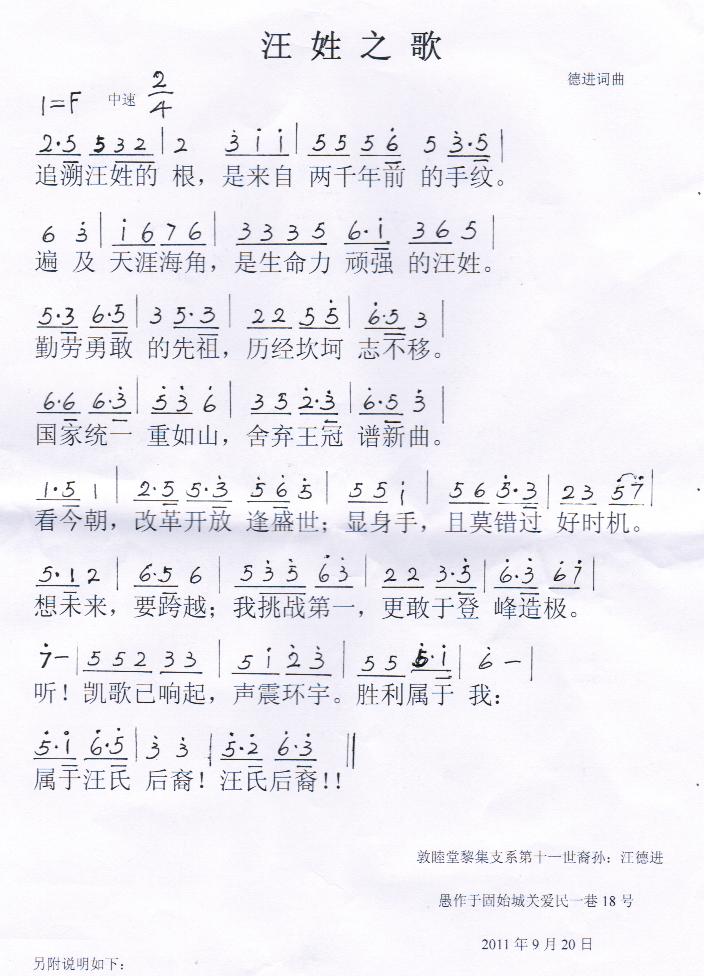 汪姓之歌
德进词曲
1=F 中速 2/4
2·5 5 3 2 | 2 3 i i | 5 5 5 6 5 3·5 |
追溯汪姓的 根，是来自 两千年前 的手纹。
6 3 | i 6 7 6 | 3 3 3 5 6·i 3 6 5 |
遍 及 天涯海角，是生命力 顽强 的汪姓。
5·3 6·5 | 3 5·3 | 2 2 5 5 | 6·5 3 |
勤劳勇敢 的先祖，历经坎坷 志不移。
6·6 6·3 | 5 3 6 | 3 5 2·3 | 6·5 3 |
国家统一 重如山，舍弃王冠 谱新曲。
1·5 1 | 2·5 5·3 5 6 5 | 5 5 i | 5 6 5·3 | 2 3 5 7 |
看今朝，改革开放 逢盛世；显身手，且莫错过 好时机。
5·1 2 | 6·5 6 | 5 3 5 6 3 | 2 2 3·5 | 6·3 6 7 |
想未来，要跨越；我挑战第一，更敢于登 峰造极。
7 — | 5 5 2 3 3 | 5 i 2 3 | 5 5 5·i | 6 — |
听！凯歌已响起，声震环宇。胜利属于 我：
5·i 6·5 | 3 3 | 5·2 6·3 ‖
属于汪氏 后裔！汪氏后裔！！
敦睦堂黎集支系第十一世裔孙：汪德进
愚作于固始城关爱民一巷 18 号
2011 年 9 月 20 日
另附说明如下：